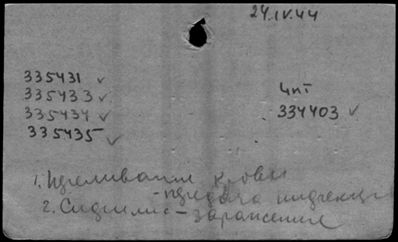 24.IV.44
335431 ✓
335433 ✓
335434 ✓
335435 ✓
4 пт
334403 ✓
1. Переливание крови
- передача инфекции
2. Сифилис - заражение